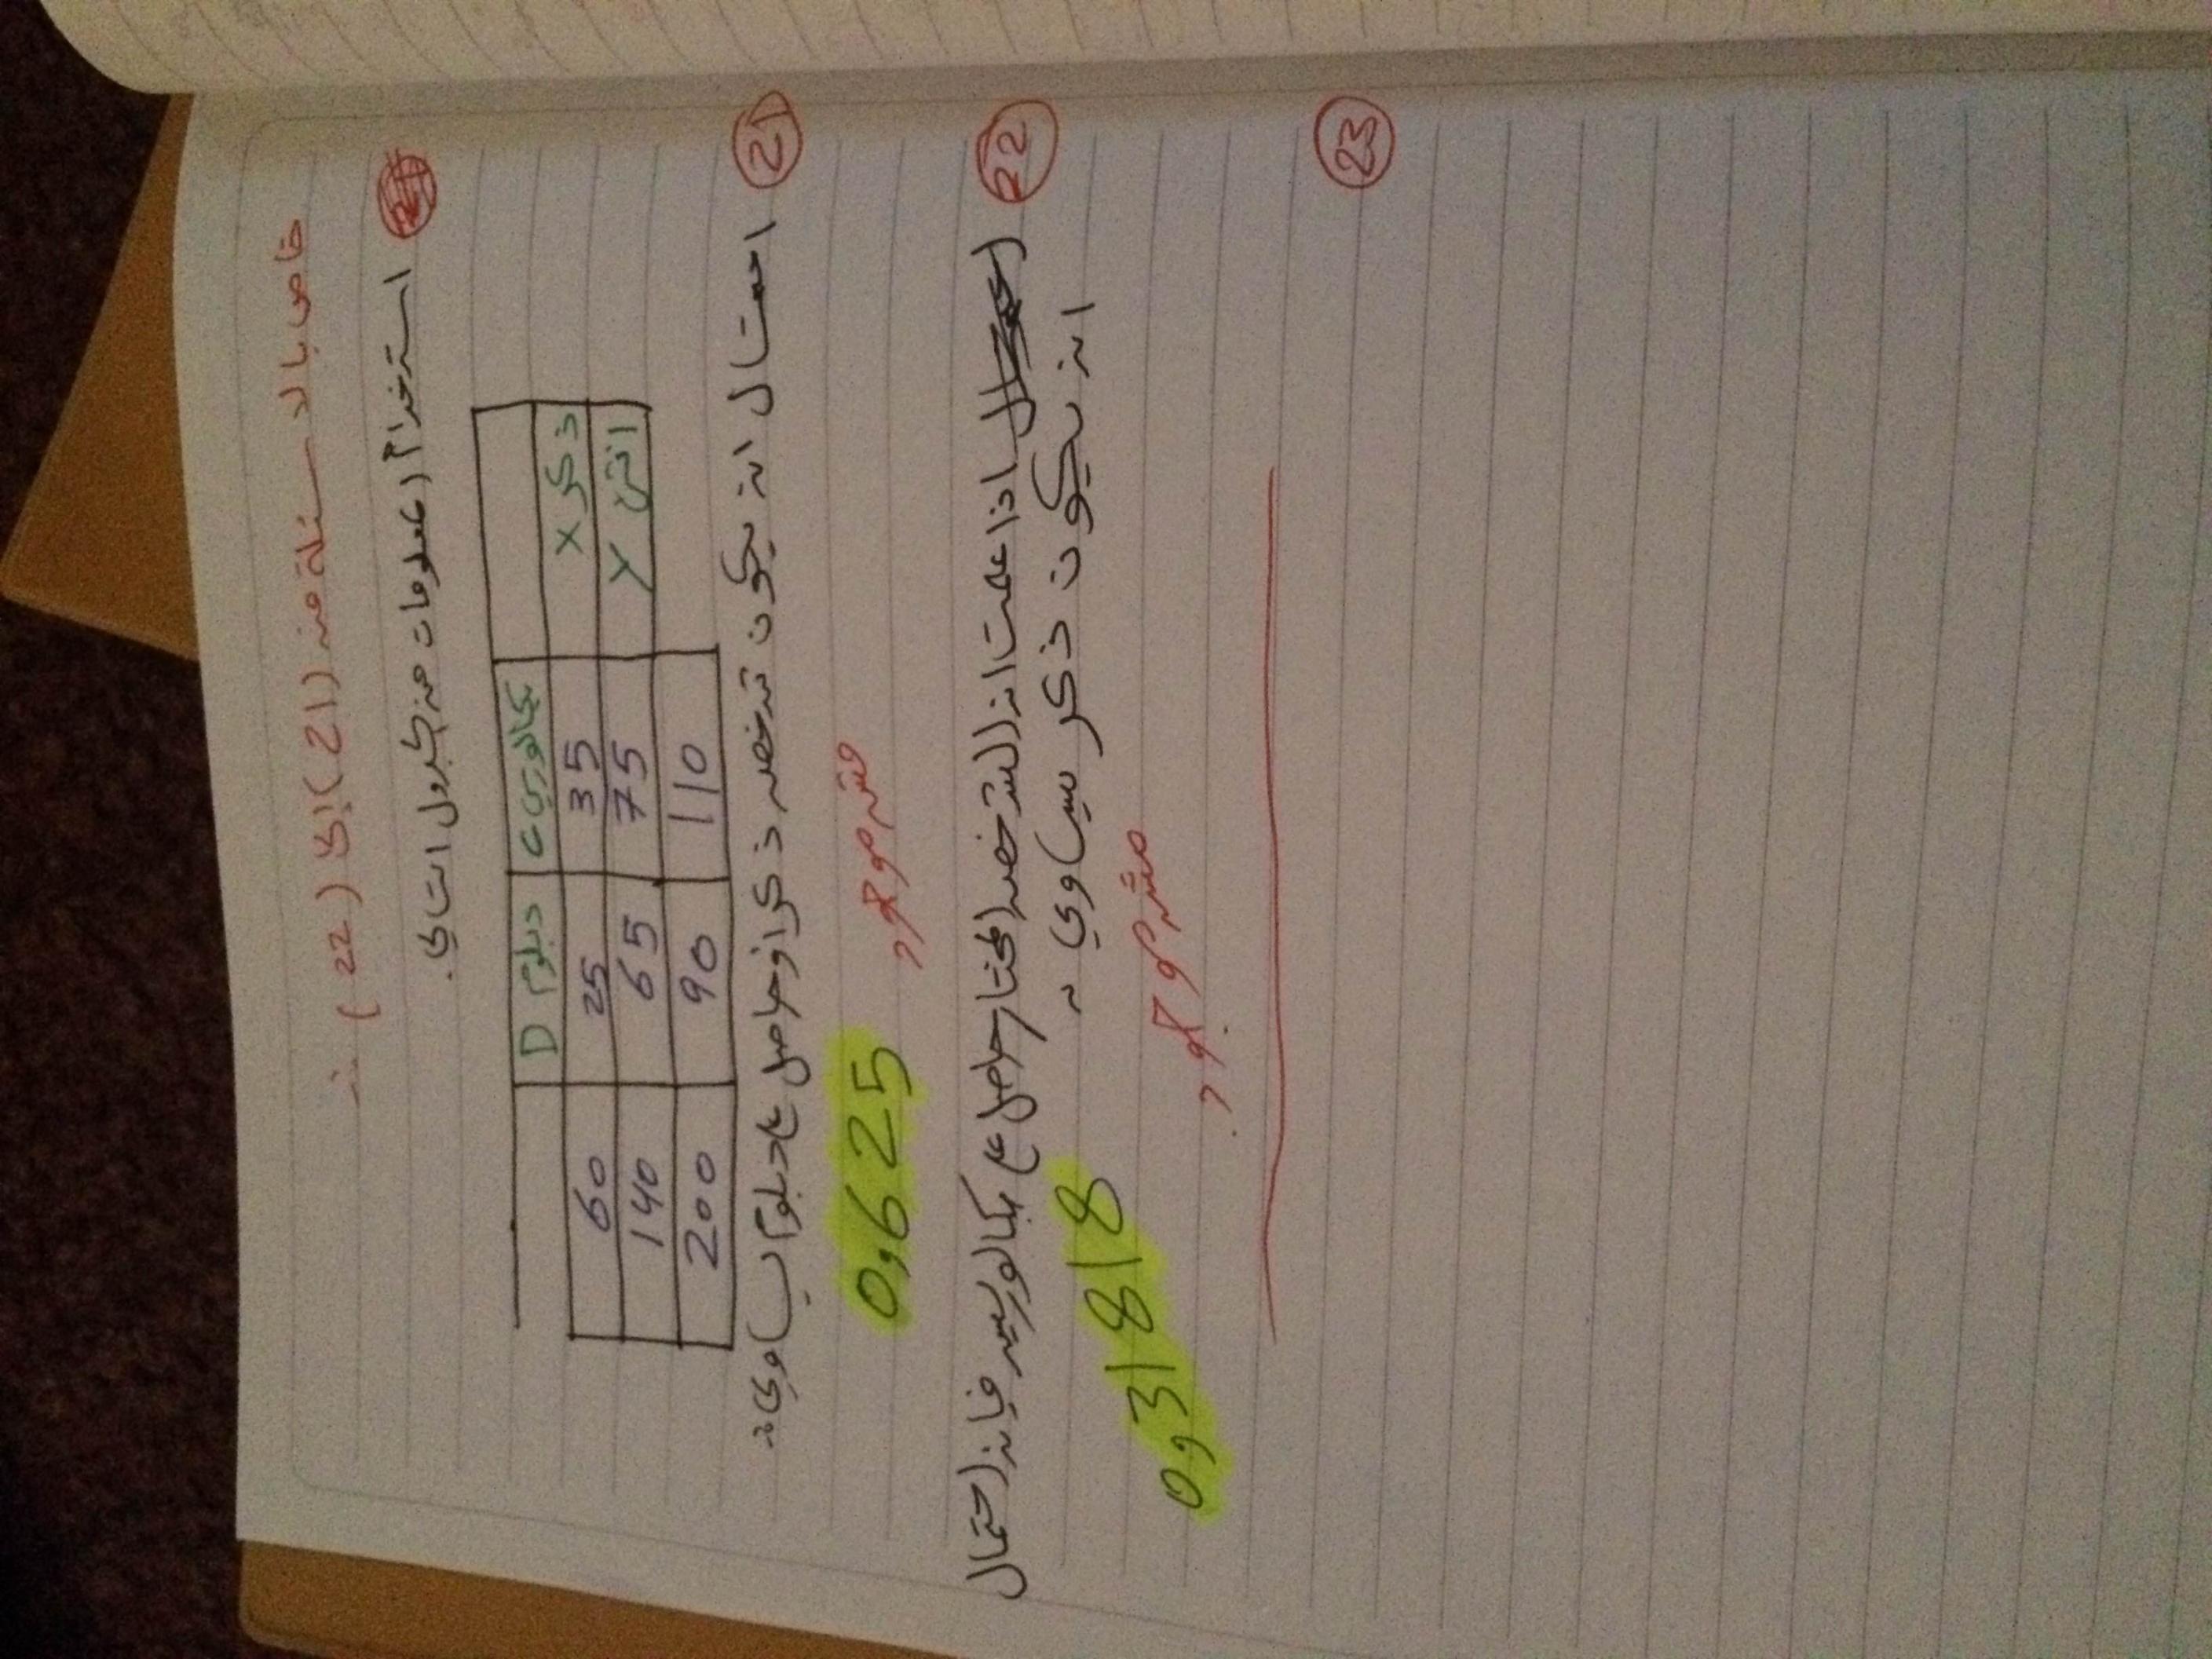 خاص بالاسئلة من (21) الى (22) :-
استخدام المعلومات من الجدول التالي.
بكالوريا C دبلوم D
ذكر X 35 25 60
انثى Y 75 65 140
110 90 200
21 احتمال ان يكون شخص ذكر او حاصل ع دبلوم يساوي :-
0,625 مش موجود
22 اذا علمت ان الشخص المختار حاصل ع بكالوريس فإن احتمال
ان يكون ذكر يساوي :-
0,31818 مش موجود
23